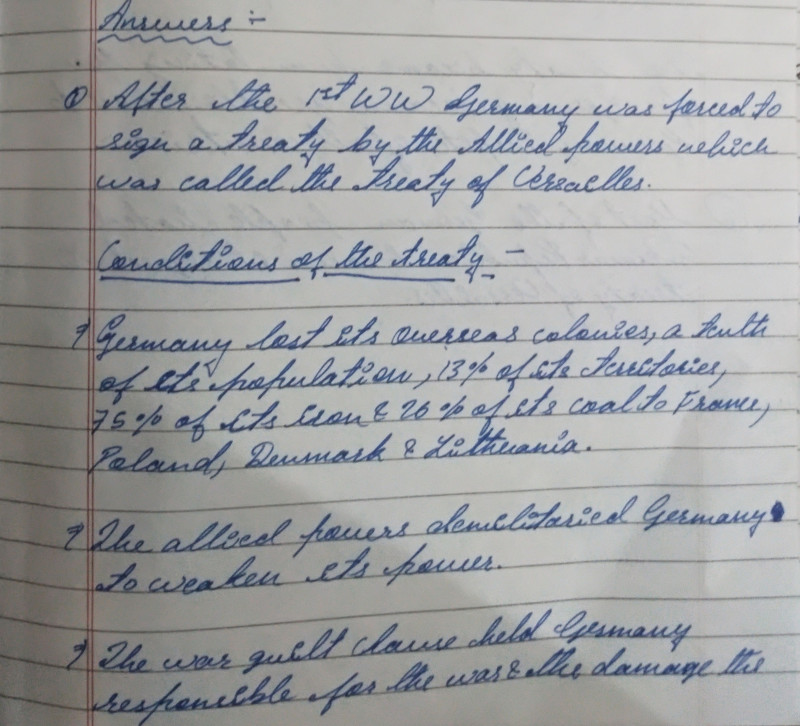 Answers :-
① After the 1st WW Germany was forced to
sign a treaty by the Allied powers which
was called the treaty of Versailles.
Conditions of the treaty -
→ Germany lost its overseas colonies, a tenth
of its population, 13% of its territories,
75% of its iron & 26% of its coal to France,
Poland, Denmark & Lithuania.
→ The allied powers demilitaried Germany
to weaken its power.
→ The war guilt clause held Germany
responsible for the war & the damage the